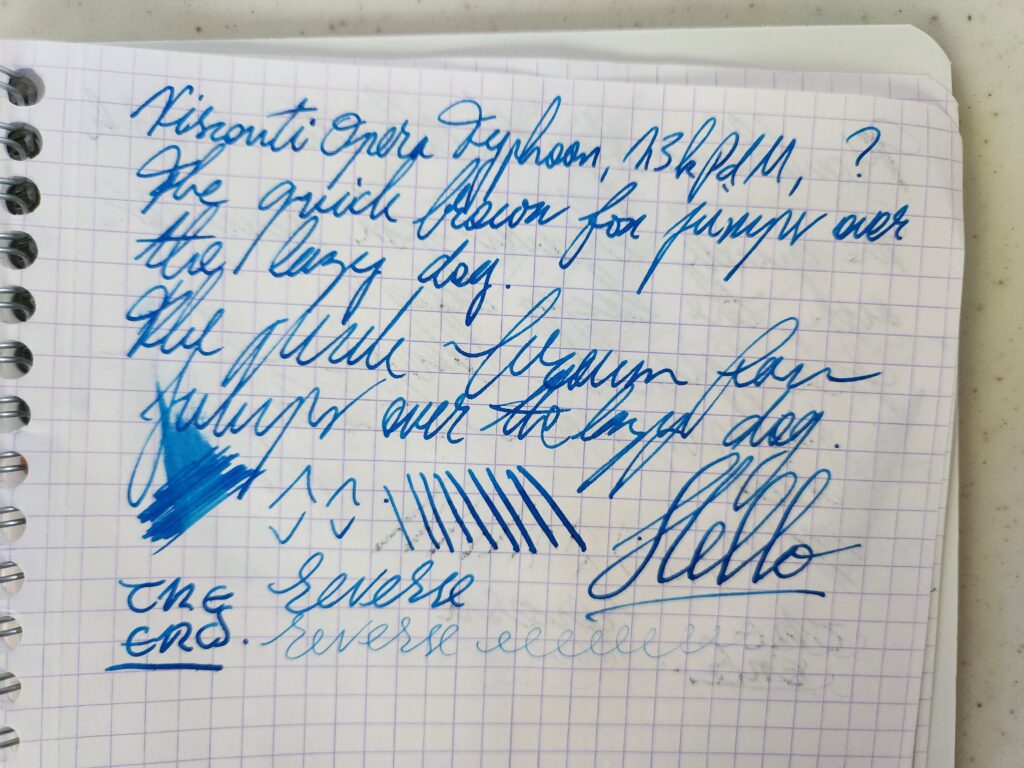 Visconti Opera Typhoon, 23kPdM, ?
The quick brown fox jumps over
the lazy dog.
The quick brown fox
jumps over the lazy dog.
Hello
THE reverse
END. reverse